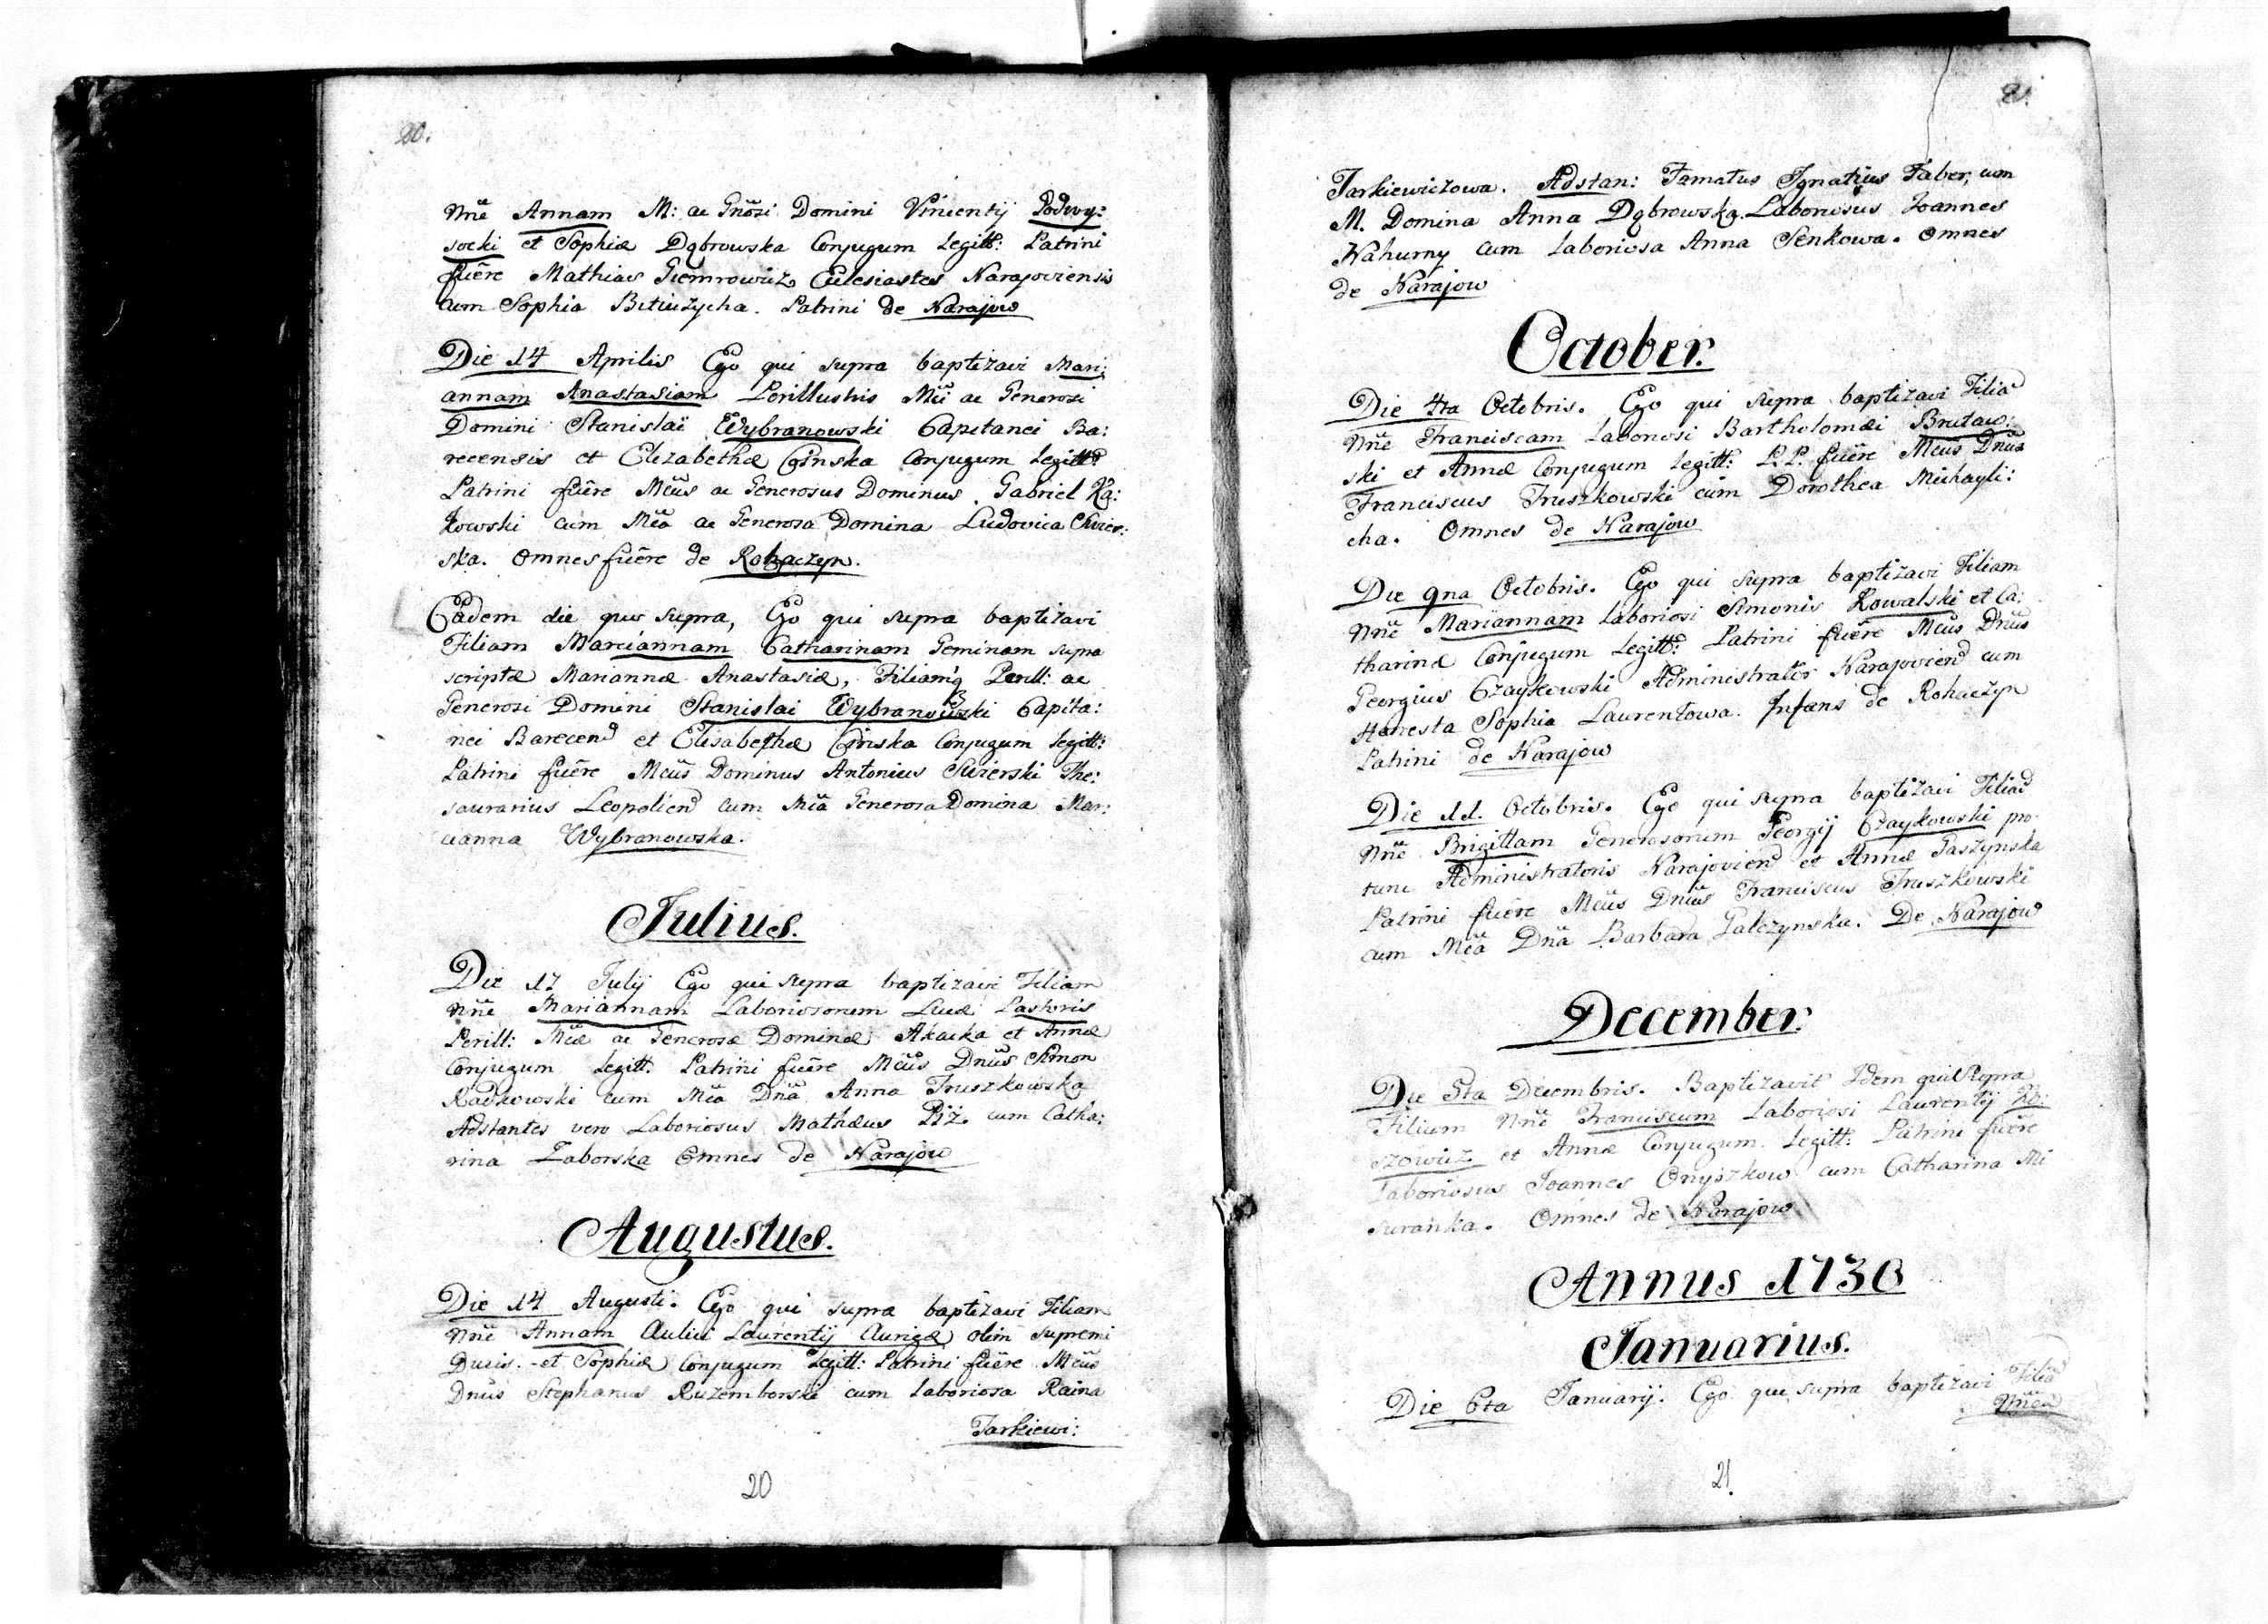 20.
Nñe Annam M: ac Gnõsi Domini Vincentij Podwy:
socki et Sophiæ Dąbrowska Conjugum Legitt: Patrini
fuêre Mathias Ecclesiastes Narajoviensis
cum Sophia Patrini de Narajow
Die 14 Aprilis Ego qui supra baptizavi Mari:
annam Anastasiam Perillustris Mci ac Generosi
Domini Stanislai Wybranowski Capitanei Ba:
recensis et Elizabethæ Conjugum Legitt:
Patrini fuêre Mcus ac Generosus Dominus Gabriel Ka:
kowski cum Mca ac Generosa Domina Ludovica Swier:
ska. Omnes fuêre de Rohaczyn.
Eadem die quo supra, Ego qui supra baptizavi
Filiam Marciannam Catharinam Geminam supra
scriptæ Mariannæ Anastasiæ, Filiamq Perill: ac
Generosi Domini Stanislai Wybranowski Capita:
nei Barecens et Elisabethæ Conjugum Legitt:
Patrini fuêre Mcus Dominus Antonius Swierski The:
saurarius Leopoliens cum Mca Generosa Domina Mar:
cianna Wybranowska.
Julius.
Die 17 Julij Ego qui supra baptizavi Filiam
Nñe Mariannam Laboriosorum Lucæ Pastoris
Perill: Mcæ ac Generosæ Dominæ et Annæ
Conjugum Legitt. Patrini fuêre Mcus Dnus Simon
Radkowski cum Mca Dna Anna Truszkowska
Adstantes vero Laboriosus Mathæus cum Catha:
rina Zaborska Omnes de Narajow
Augustus.
Die 14 Augusti. Ego qui supra baptizavi Filiam
Nñe Annam Aulici Laurentij Aurigæ olim supremi
Ducis. et Sophiæ Conjugum Legitt: Patrini fuêre Mcus
Dnus Stephanus Ruzemborski cum Laboriosa Raina
Tarkiewi:
20
21.
Tarkiewiczowa. Adstan: Famatus Ignatius Faber, cum
M. Domina Anna Dąbrowska. Laboriosus Joannes
Nahurny cum Laboriosa Anna Senkowa. Omnes
de Narajow
October.
Die 4ta Octobris. Ego qui supra baptizavi Filia
Nñe Franciscam Laboriosi Bartholomæi Brutow:
ski et Annæ Conjugum Legitt: P.P. fuêre Mcus Dnus
Franciscus Truszkowski cum Dorothea Michayli:
cha. Omnes de Narajow
Die 9na Octobris. Ego qui supra baptizavi Filiam
Nñe Mariannam Laboriosi Simonis Kowalski et Ca:
tharinæ Conjugum Legitt: Patrini fuêre Mcus Dnus
Georgius Czaykowski Administrator Narajoviens cum
Honesta Sophia Laurentowa. Infans de Rohaczyn
Patrini de Narajow
Die 11. Octobris. Ego qui supra baptizavi Filia
Nñe Brigittam Generosorum Georgij Czaykowski pro
tunc Administratoris Narajoviens et Annæ Gaszynska
Patrini fuêre Mcus Dnus Franciscus Truszkowski
cum Mca Dna Barbara Galczynska. De Narajow
December.
Die 5ta Decembris. Baptizavit Idem qui Supra
Filium Nñe Franciscum Laboriosi Laurentij
szowicz et Annæ Conjugum Legitt: Patrini fuêre
Laboriosus Joannes Onyszkow cum Catharina Mi
suranka. Omnes de Narajow
Annus 1730
Januarius.
Die 6ta Januarij. Ego qui supra baptizavi Filia
Nñe
21.